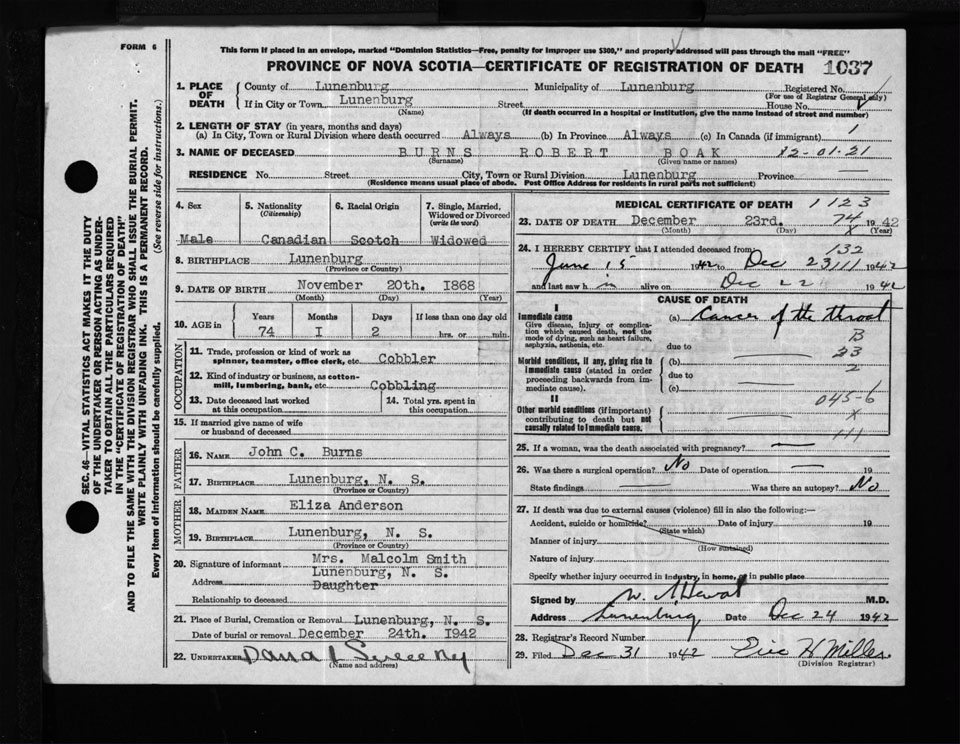 FORM 6
This form if placed in an envelope, marked "Dominion Statistics—Free, penalty for improper use $300," and properly addressed will pass through the mail "FREE"
PROVINCE OF NOVA SCOTIA—CERTIFICATE OF REGISTRATION OF DEATH 1037
SEC. 46—VITAL STATISTICS ACT MAKES IT THE DUTY
OF THE UNDERTAKER OR PERSON ACTING AS UNDER-
TAKER TO OBTAIN ALL THE PARTICULARS REQUIRED
IN THE "CERTIFICATE OF REGISTRATION OF DEATH"
AND TO FILE THE SAME WITH THE DIVISION REGISTRAR WHO SHALL ISSUE THE BURIAL PERMIT.
WRITE PLAINLY WITH UNFADING INK. THIS IS A PERMANENT RECORD.
Every item of information should be carefully supplied. (See reverse side for instructions.)
1. PLACE OF DEATH
County of Lunenburg Municipality of Lunenburg Registered No.
(For use of Registrar General only)
If in City or Town Lunenburg Street House No.
(Name) (If death occurred in a hospital or institution, give the name instead of street and number)
2. LENGTH OF STAY (in years, months and days)
(a) In City, Town or Rural Division where death occurred Always (b) In Province Always (c) In Canada (if immigrant) 1
3. NAME OF DECEASED BURNS ROBERT BOAK 12-01-21
(Surname) (Given name or names)
RESIDENCE No. Street City, Town or Rural Division Lunenburg Province
(Residence means usual place of abode. Post Office Address for residents in rural parts not sufficient)
4. Sex
Male
5. Nationality
(Citizenship)
Canadian
6. Racial Origin
Scotch
7. Single, Married,
Widowed or Divorced
(write the word)
Widowed
8. BIRTHPLACE Lunenburg
(Province or Country)
9. DATE OF BIRTH November 20th. 1868
(Month) (Day) (Year)
10. AGE in
Years Months Days If less than one day old
74 I 2 hrs. or min.
OCCUPATION
11. Trade, profession or kind of work as
spinner, teamster, office clerk, etc. Cobbler
12. Kind of industry or business, as cotton-
mill, lumbering, bank, etc Cobbling
13. Date deceased last worked
at this occupation
14. Total yrs. spent in
this occupation
15. If married give name of wife
or husband of deceased
FATHER
16. NAME John C. Burns
17. BIRTHPLACE Lunenburg, N. S.
(Province or Country)
MOTHER
18. MAIDEN NAME Eliza Anderson
19. BIRTHPLACE Lunenburg, N. S.
(Province or Country)
20. Signature of informant Mrs. Malcolm Smith
Address Lunenburg, N. S.
Daughter
Relationship to deceased
21. Place of Burial, Cremation or Removal Lunenburg, N. S.
Date of burial or removal December 24th. 1942
22. UNDERTAKER
(Name and address)
MEDICAL CERTIFICATE OF DEATH 1123
23. DATE OF DEATH December 23rd. 1942
(Month) (Day) (Year)
74
X
24. I HEREBY CERTIFY that I attended deceased from 132
June 15 1942 to Dec 23 1942
111
and last saw h im alive on Dec 22 1942
CAUSE OF DEATH
I
Immediate cause (a) Cancer of the throat
Give disease, injury or complica-
tion which caused death, not the
mode of dying, such as heart failure,
asphyxia, asthenia, etc.
due to
B
23
Morbid conditions, if any, giving rise to
immediate cause (stated in order
proceeding backwards from im-
mediate cause).
(b)
2
due to
(c)
045-6
II
Other morbid conditions (if important)
contributing to death but not
causally related to immediate cause.
X
111
25. If a woman, was the death associated with pregnancy?
26. Was there a surgical operation? No Date of operation 19
State findings Was there an autopsy? No
27. If death was due to external causes (violence) fill in also the following:—
Accident, suicide or homicide? Date of injury 19
(State which)
Manner of injury
(How sustained)
Nature of injury
Specify whether injury occurred in industry, in home, or in public place
Signed by M.D.
Address Lunenburg Date Dec 24 1942
28. Registrar's Record Number
29. Filed Dec 31 1942 Eric H Miller
(Division Registrar)